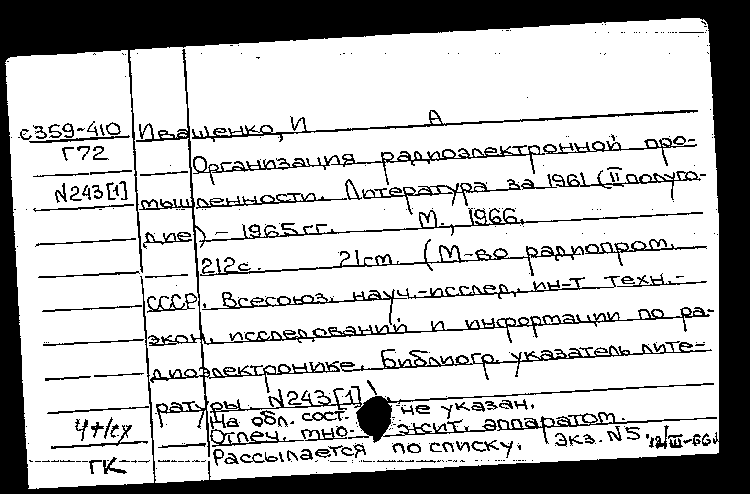 с359-410 Иващенко, И А
Г72 Организация радиоэлектронной про-
N243[1] мышленности. Литература за 1961 (II полуго-
дие) - 1965 гг. М., 1966.
212с. 21cm. (М-во радиопром.
СССР. Всесоюз. науч.-исслед. ин-т техн.-
экон. исследований и информации по ра-
диоэлектронике. Библиогр. указатель лите-
ратуры N243[1])
На обл. сост. не указан.
Отпеч. мно- жит. аппаратом.
Рассылается по списку. экз. N5 12/III-66
ГК